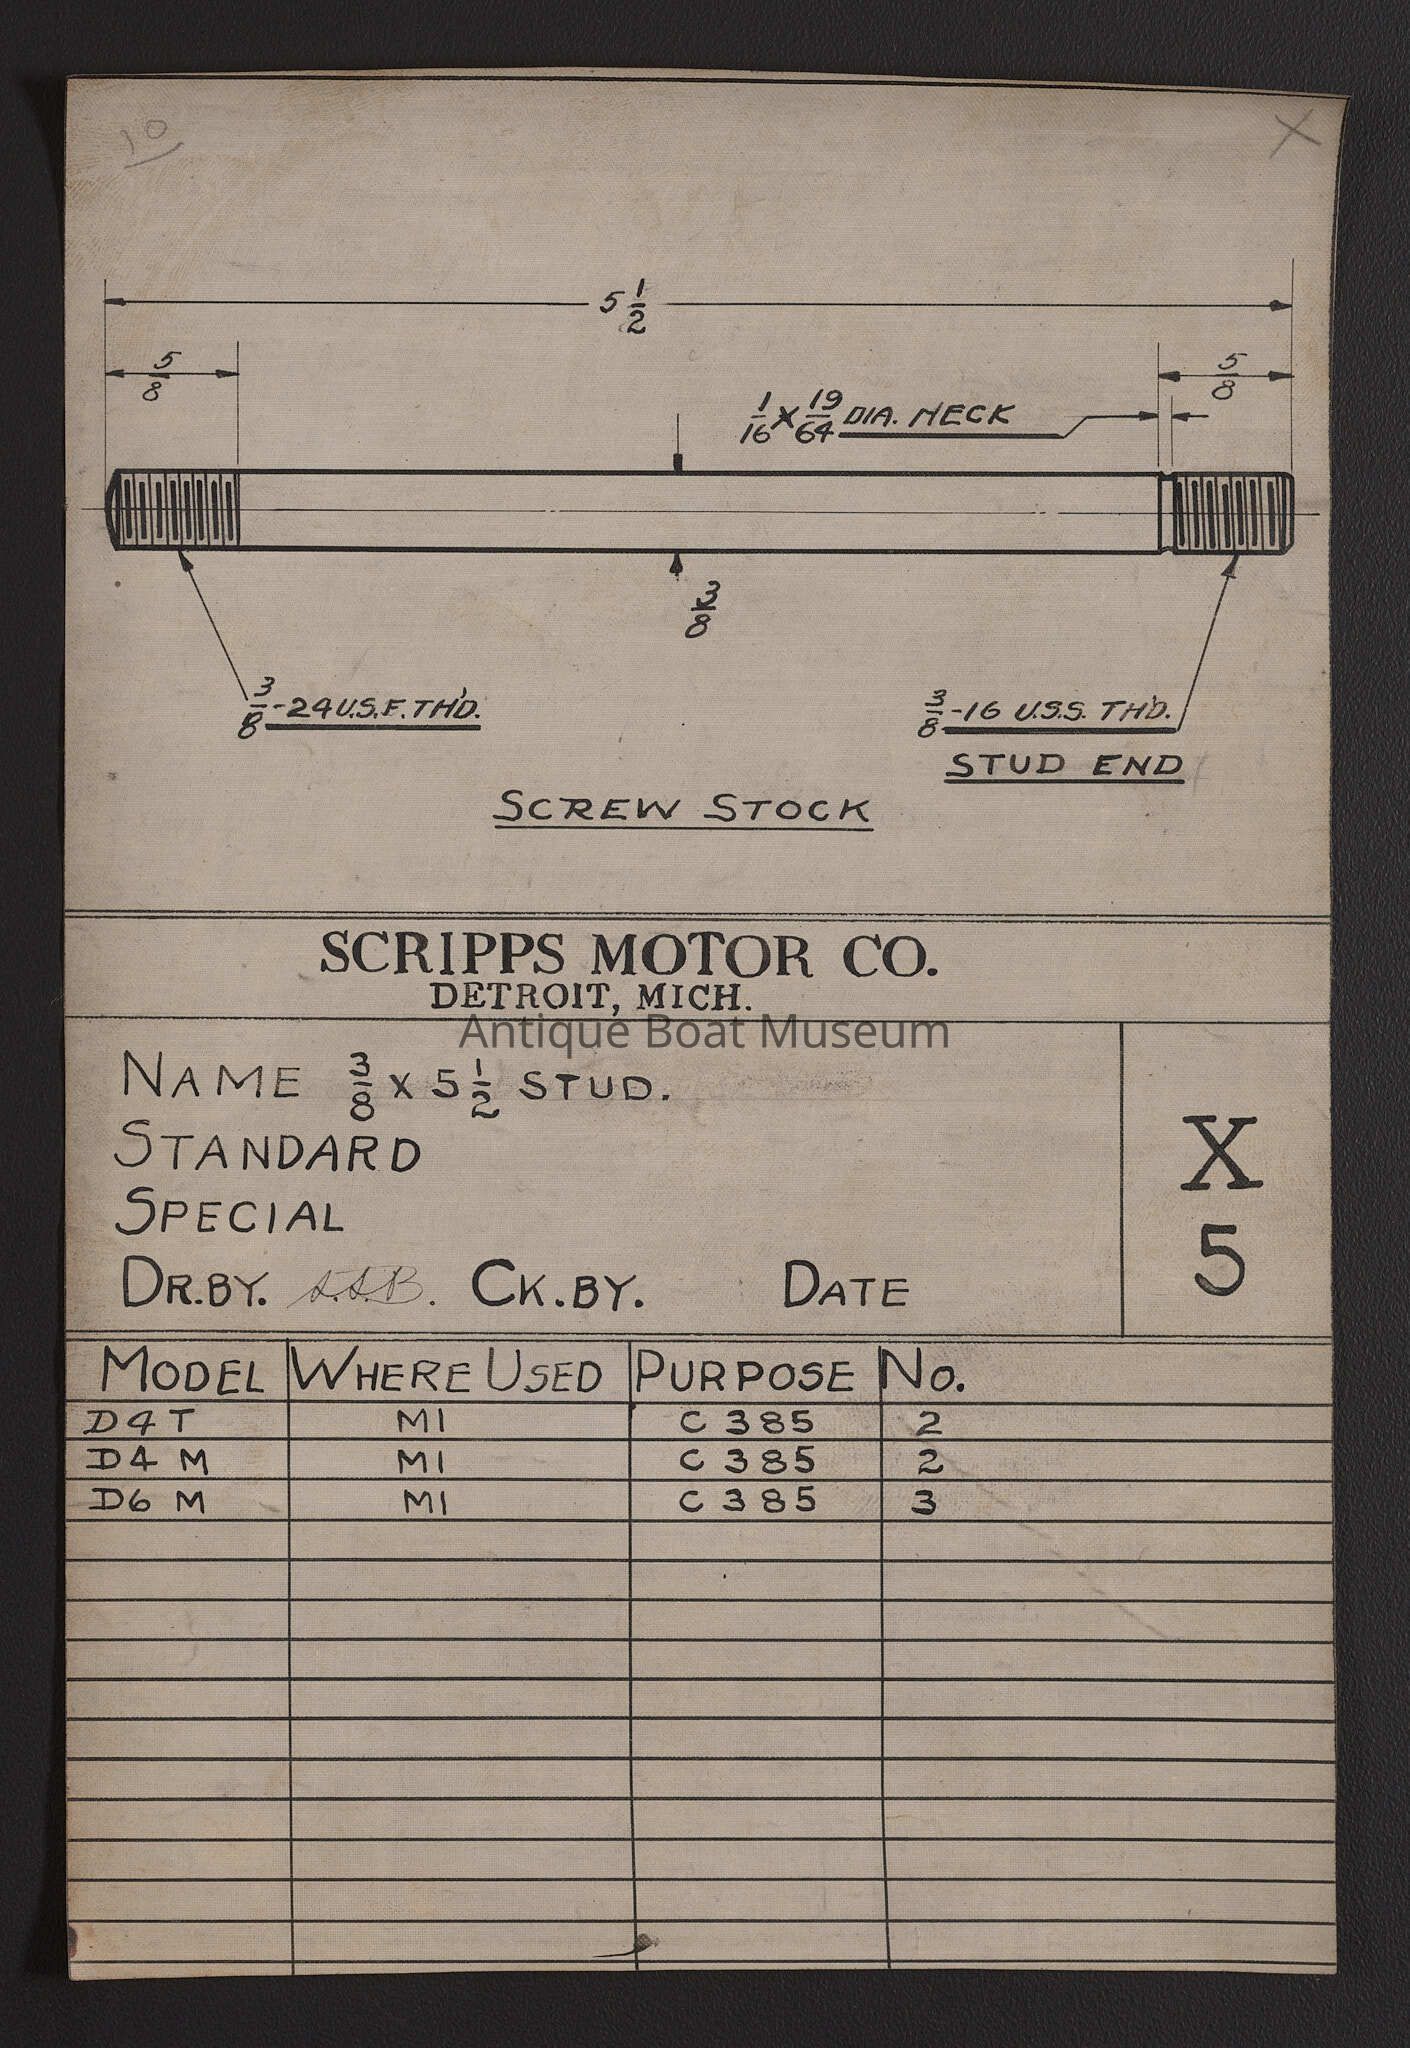 10
X
5 1/2
5/8
5/8
1/16 X 19/64 DIA. NECK
3/8
3/8-24 U.S.F. TH'D.
3/8-16 U.S.S. TH'D.
STUD END
SCREW STOCK
SCRIPPS MOTOR CO.
DETROIT, MICH.
Antique Boat Museum
NAME 3/8 X 5 1/2 STUD.
STANDARD
SPECIAL
X
5
DR.BY. S.S.B. CK.BY. DATE
MODEL WHERE USED PURPOSE NO.
D4T M1 C385 2
D4 M M1 C385 2
D6 M M1 C385 3